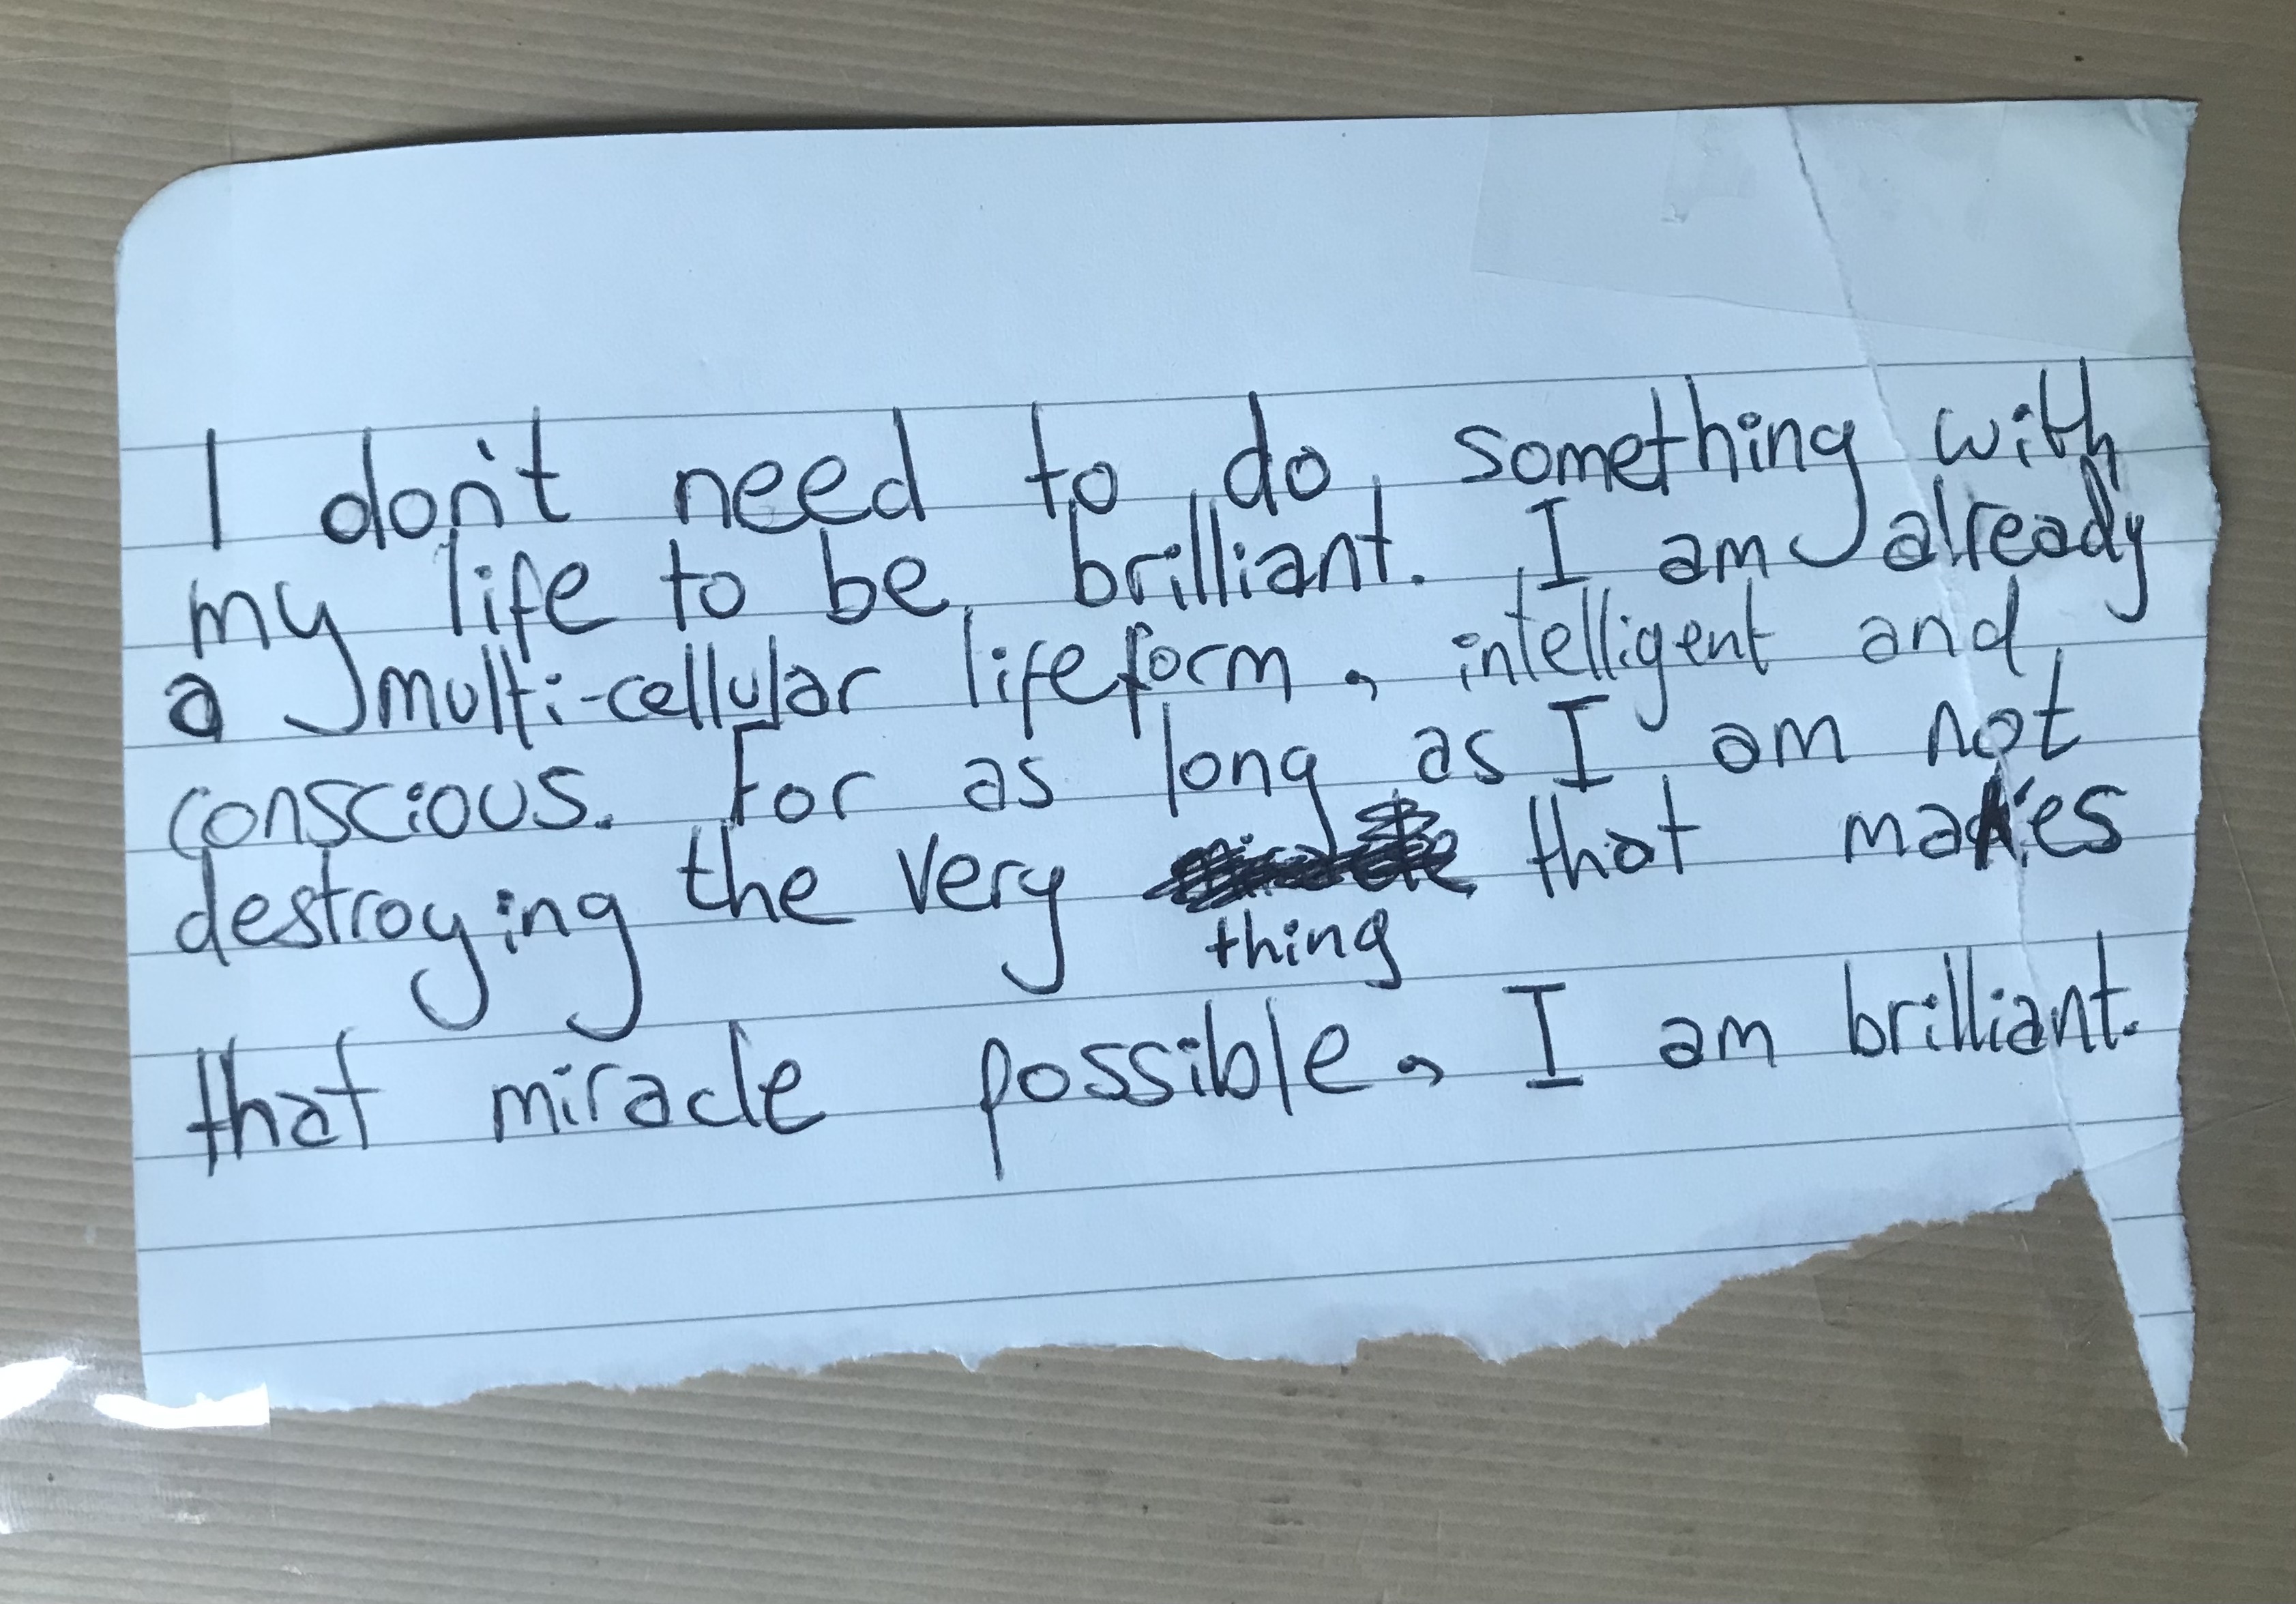 I don't need to do something with
my life to be brilliant. I am already
a multi-cellular lifeform, intelligent and
conscious. For as long as I am not
destroying the very that makes
thing
that miracle possible, I am brilliant.